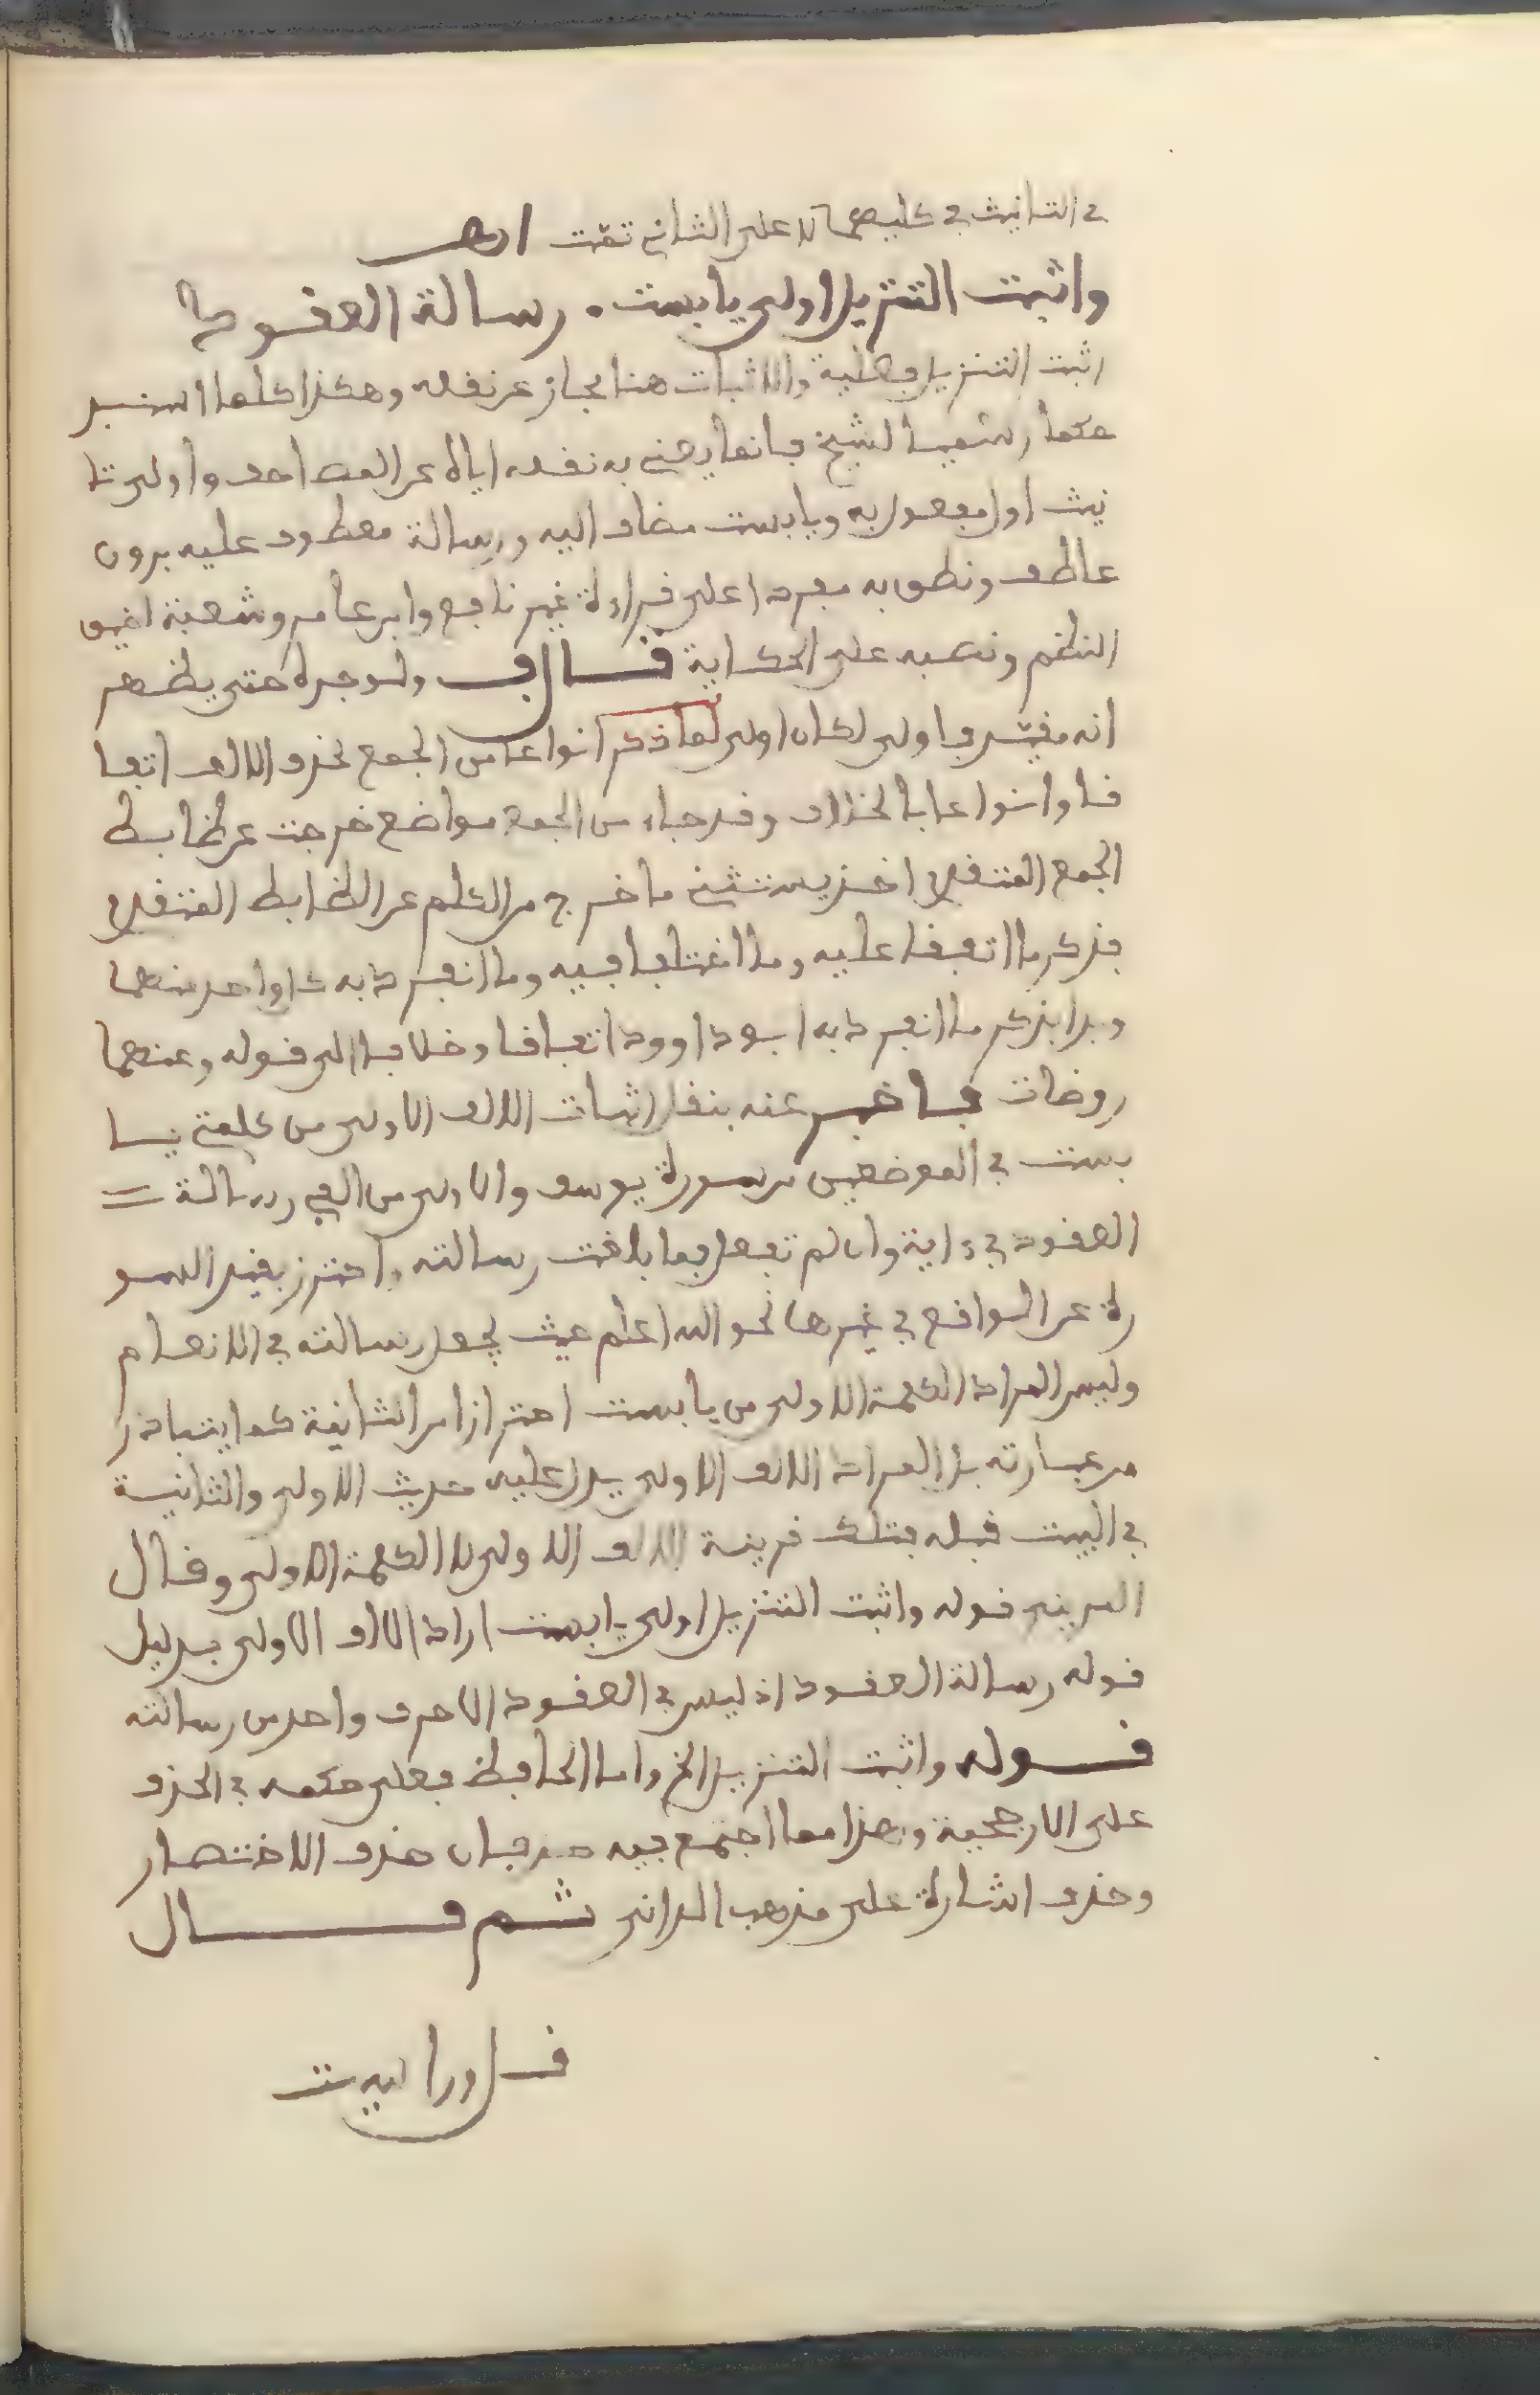 في التانيث في كليهما لا على الثاني تمت انتهى
واثبت التنزيل اولى يابست • رسالة العقود
اثبت التنزيل فعلية والاثبات هنا مجاز عن نقله وهكذا كلما اسند
حكما رسميا لشيخ فانما يعني به نقله اياه عن المصاحف واولى تا
نيث اول مفعول به ويابست مضاف اليه ورسالة معطوف عليه بدون
عاطف ونطق به مفردا على قراءة غير نافع وابن عامر وشعبة لضيق
النظم ونصبه على الحكاية قال ولو جره حتى يظهر
انه مفسر باولى لكان اولى لما ذكر انواعا من الجمع بحذف الالف اتفا
قا وانواعا بالخلاف وقد جاء من الجمع مواضع خرجت عن ضابط
الجمع المتقدم اخذ يستثني ما خرج من الكلم عن الضابط المتقدم
فذكر ما اتفقا عليه وما اختلفا فيه وما انفرد به كل واحد منهما
وبدا بذكر ما انفرد به ابو داوود اتفاقا وخلافا الى قوله وعنهما
روضات فاخبر عنه بنقل اثبات الالف الاولى من كلمتي يا
بست في الموضعين من سورة يوسف والاولى من الفي رسالة =
العقود في ءاية وان لم تفعل فما بلغت رسالته واحترز بقيد السو
رة عن الواقع في غيرها نحو الله اعلم حيث يجعل رسالته في الانعام
وليس المراد الكلمة الاولى من يابست احترازا من الثانية كما يتبادر
من عبارته بل المراد الالف الاولى يدل عليه حديث الاولى والثانية
في البيت قبله فتلك قرينة الالف الاولى لا الكلمة الاولى وقال
المريني قوله واثبت التنزيل اولى يابست اراد الالف الاولى بدليل
قوله رسالة العقود اذ ليس في العقود الا حرف واحد من رسالته
قوله واثبت التنزيل الخ واما الحافظ فعلى حكمه في الحذف
على الارجحية وهذا مما اجتمع فيه حذفان حذف الاختصار
وحذف اشارة على مذهب الداني ثم قال